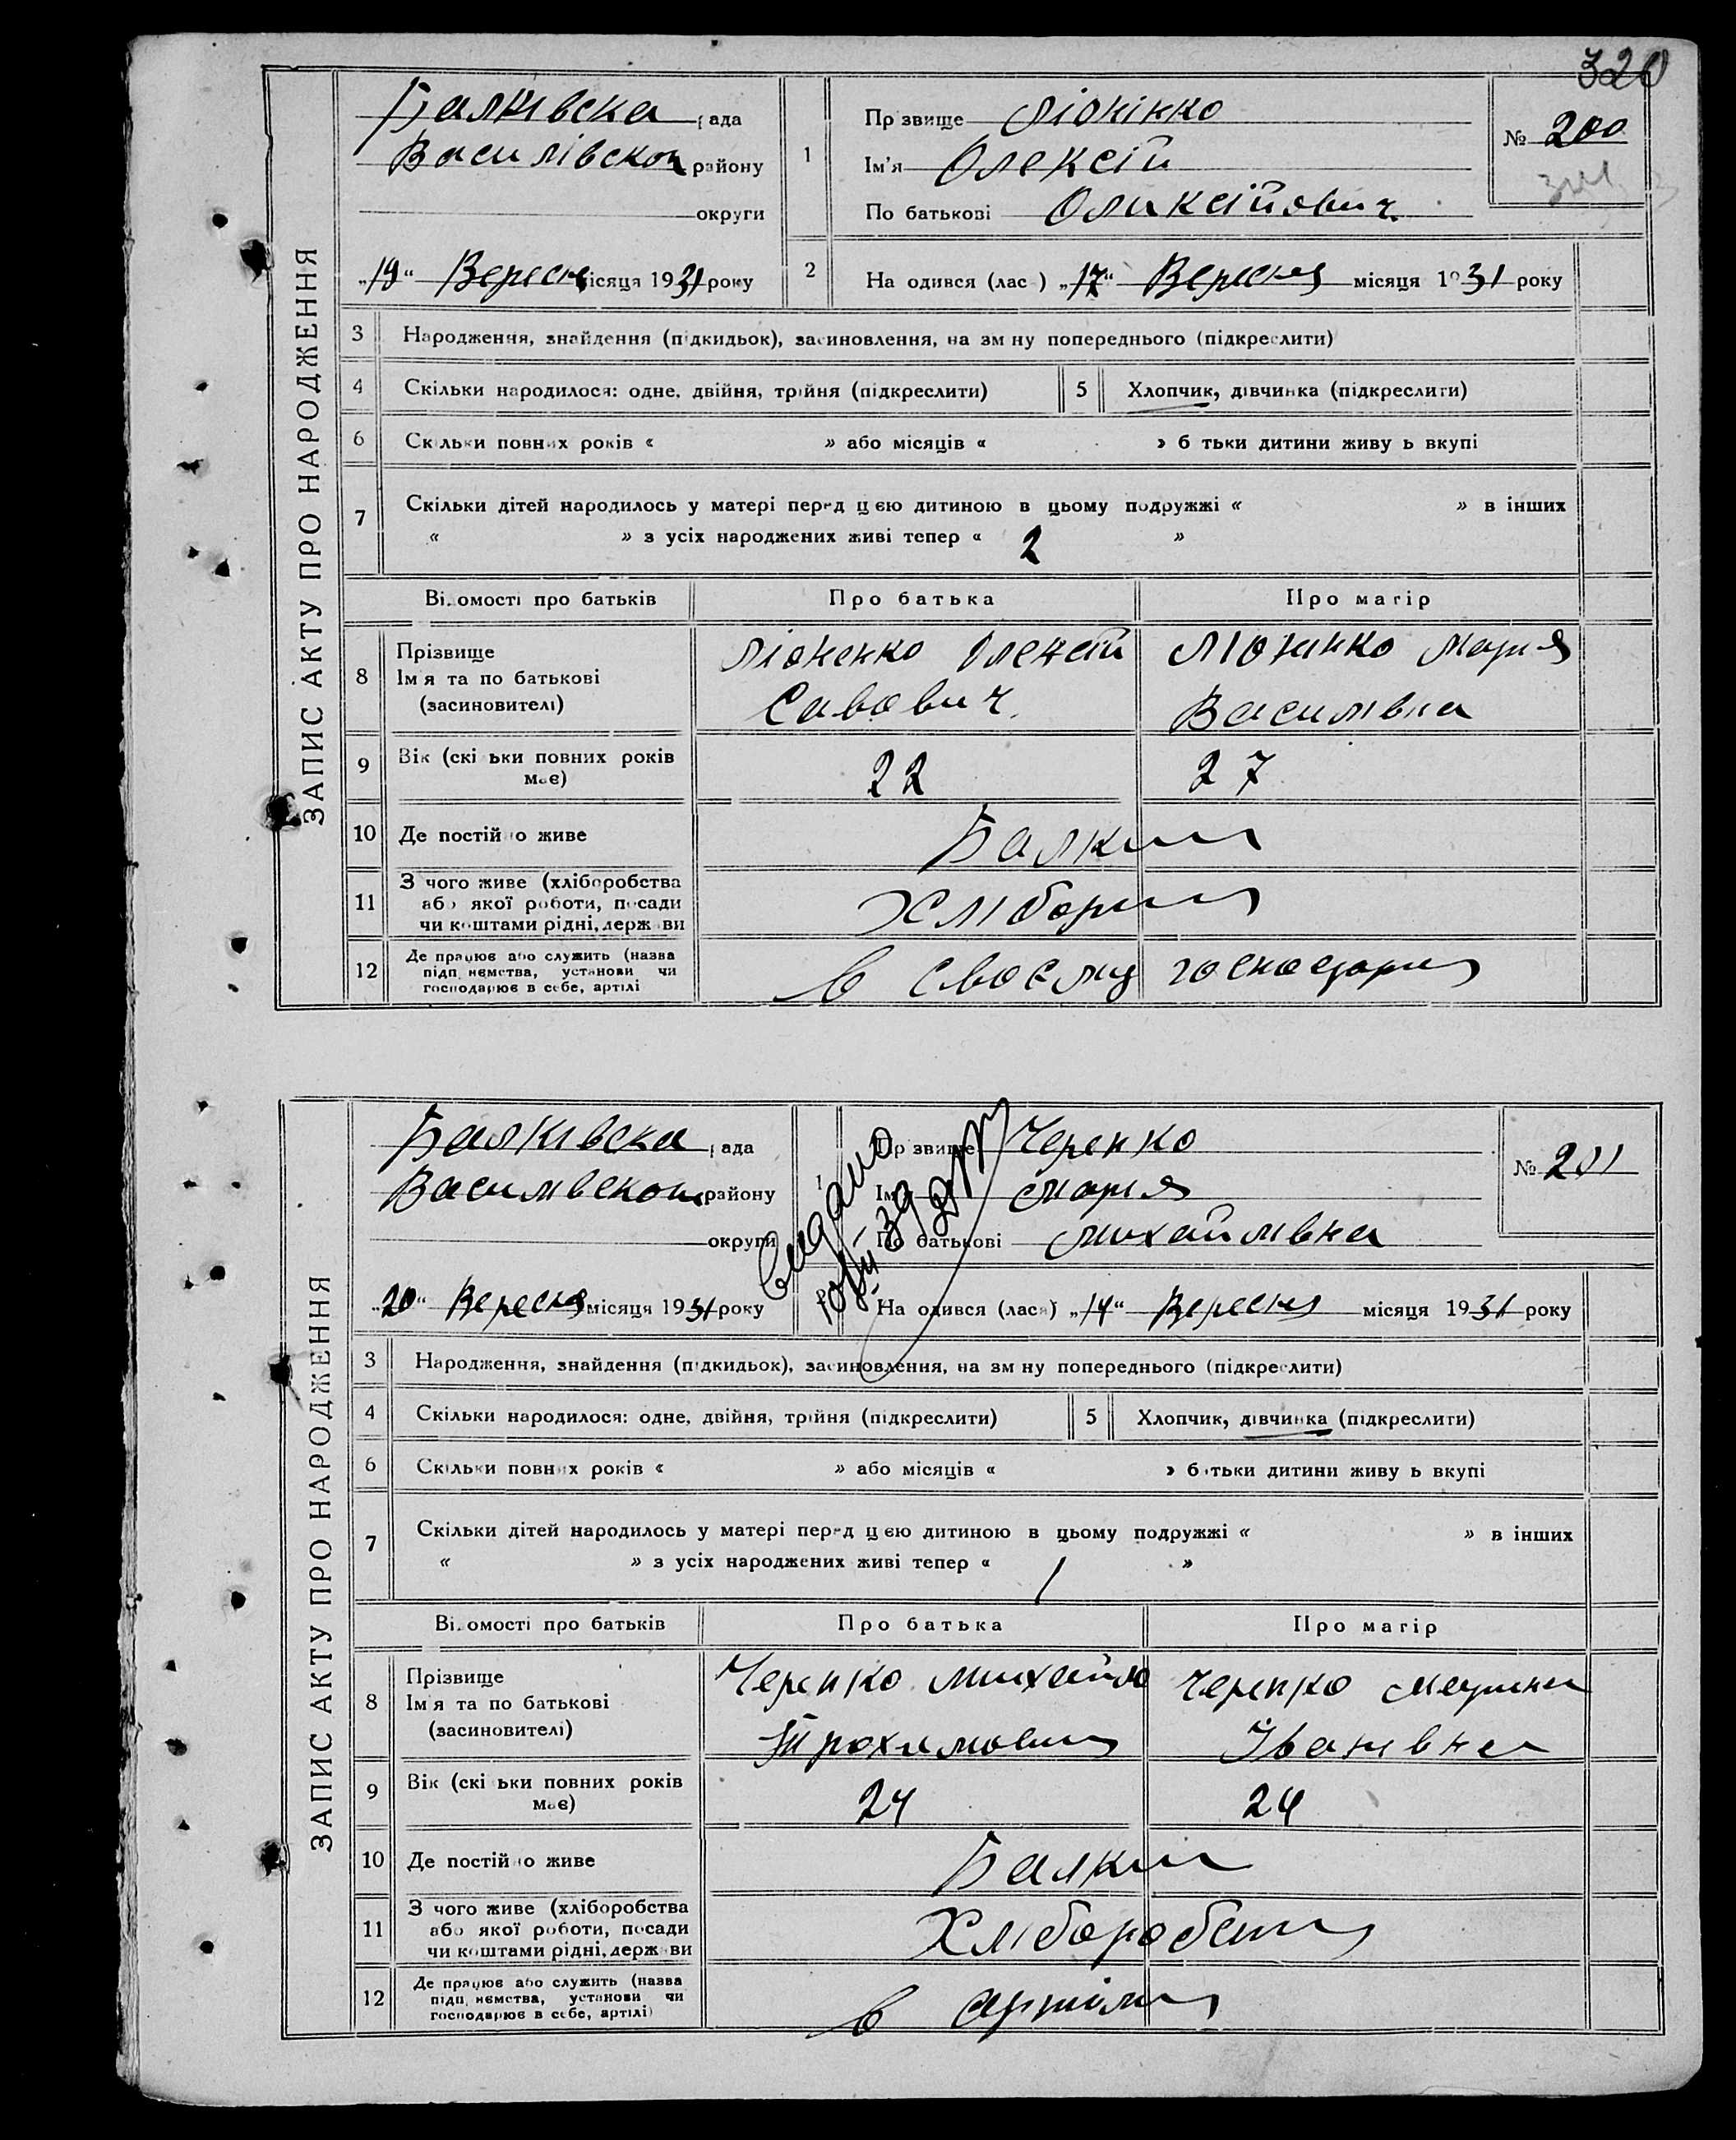 320
ЗАПИС АКТУ ПРО НАРОДЖЕННЯ
Балківска рада
Василівском району
округи
„19“ Вересня місяця 1931 року
1
Прізвище Ліонінко
Ім'я Олексій
По батькові Оликсійович
№ 200
2 Народився (лась) „17“ Вересня місяця 1931 року
3 Народження, знайдення (підкидьок), засиновлення, на зміну попереднього (підкреслити)
4 Скільки народилося: одне, двійня, трійня (підкреслити) 5 Хлопчик, дівчинка (підкреслити)
6 Скільки повних років « » або місяців « » батьки дитини живуть вкупі
7 Скільки дітей народилось у матері перед цією дитиною в цьому подружжі « » в інших
« » з усіх народжених живі тепер « 2 »
Відомості про батьків Про батька Про матір
8 Прізвище Ім'я та по батькові (засиновителі)
Ліоненко Олексій Савович
Ліонинко Мария Василивна
9 Вік (скільки повних років має) 22 27
10 Де постійно живе Балки
11 З чого живе (хліборобства або якої роботи, посади чи коштами рідні, держави
12 Де працює або служить (назва підприємства, установи чи господарює в себе, артілі
в своєму
ЗАПИС АКТУ ПРО НАРОДЖЕННЯ
Балківска рада
Василивском району
округи
„20“ Вересня місяця 1931 року
1
Прізвище Черепко
Ім'я Мария
По батькові Михайливна
№ 201
2 Народився (лася) „14“ Вересня місяця 1931 року
3 Народження, знайдення (підкидьок), засиновлення, на зміну попереднього (підкреслити)
4 Скільки народилося: одне, двійня, трійня (підкреслити) 5 Хлопчик, дівчинка (підкреслити)
6 Скільки повних років « » або місяців « » батьки дитини живуть вкупі
7 Скільки дітей народилось у матері перед цією дитиною в цьому подружжі « » в інших
« » з усіх народжених живі тепер « 1 »
Відомості про батьків Про батька Про матір
8 Прізвище Ім'я та по батькові (засиновителі)
Черепко Михайло Трохимович
Черепко Марина Іванивна
9 Вік (скільки повних років має) 24 24
10 Де постійно живе Балки
11 З чого живе (хліборобства або якої роботи, посади чи коштами рідні, держави
12 Де працює або служить (назва підприємства, установи чи господарює в себе, артілі)
в артіли